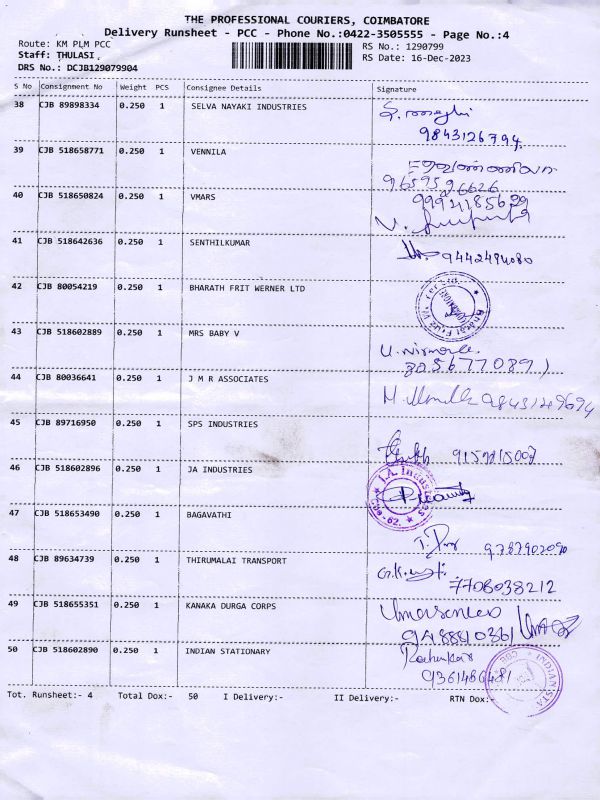 THE PROFESSIONAL COURIERS, COIMBATORE
Delivery Runsheet - PCC - Phone No.:0422-3505555 - Page No.:4
Route: KM PLM PCC RS No.: 1290799
Staff: THULASI. RS Date: 16-Dec-2023
DRS No.: DCJB129079904
S No Consignment No Weight PCS Consignee Details Signature
38 CJB 89898334 0.250 1 SELVA NAYAKI INDUSTRIES
9843126794.
39 CJB 518658771 0.250 1 VENNILA
9659596626
40 CJB 518650824 0.250 1 VMARS
9994185629
41 CJB 518642636 0.250 1 SENTHILKUMAR
9442494080
42 CJB 80054219 0.250 1 BHARATH FRIT WERNER LTD
43 CJB 518602889 1 0.250 1 MRS BABY V
U. Nirmala
44 CJB 80036641 0.250 1 J M R ASSOCIATES
45 CJB 89716950 0.250 1 SPS INDUSTRIES
46 CJB 518602896 0.250 1 JA INDUSTRIES
J.A. Industries
47 CJB 518653490 0.250 1 BAGAVATHI
48 CJB 89634739 0.250 1 THIRUMALAI TRANSPORT
7708038212
49 CJB 518655351 0.250 1 KANAKA DURGA CORPS
9488810361
50 CJB 518602890 0.250 1 INDIAN STATIONARY
Tot. Runsheet:- 4 Total Dox:- 50 I Delivery:- II Delivery:- RTN Dox:-